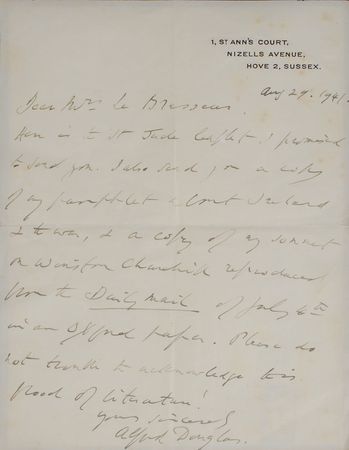 1, ST ANN'S COURT,
NIZELLS AVENUE,
HOVE 2, SUSSEX.
Aug 29. 1941.
Dear Mrs le Brasseur.
Here is the St Jude leaflet I promised
to send you. I also send you a copy
of my pamphlet about Ireland
& the war, & a copy of my sonnet
on Winston Churchill reproduced
from the Daily Mail of July 4th
in an Oxford paper. Please do
not trouble to acknowledge this
flood of literature!
Yours sincerely
Alfred Douglas.